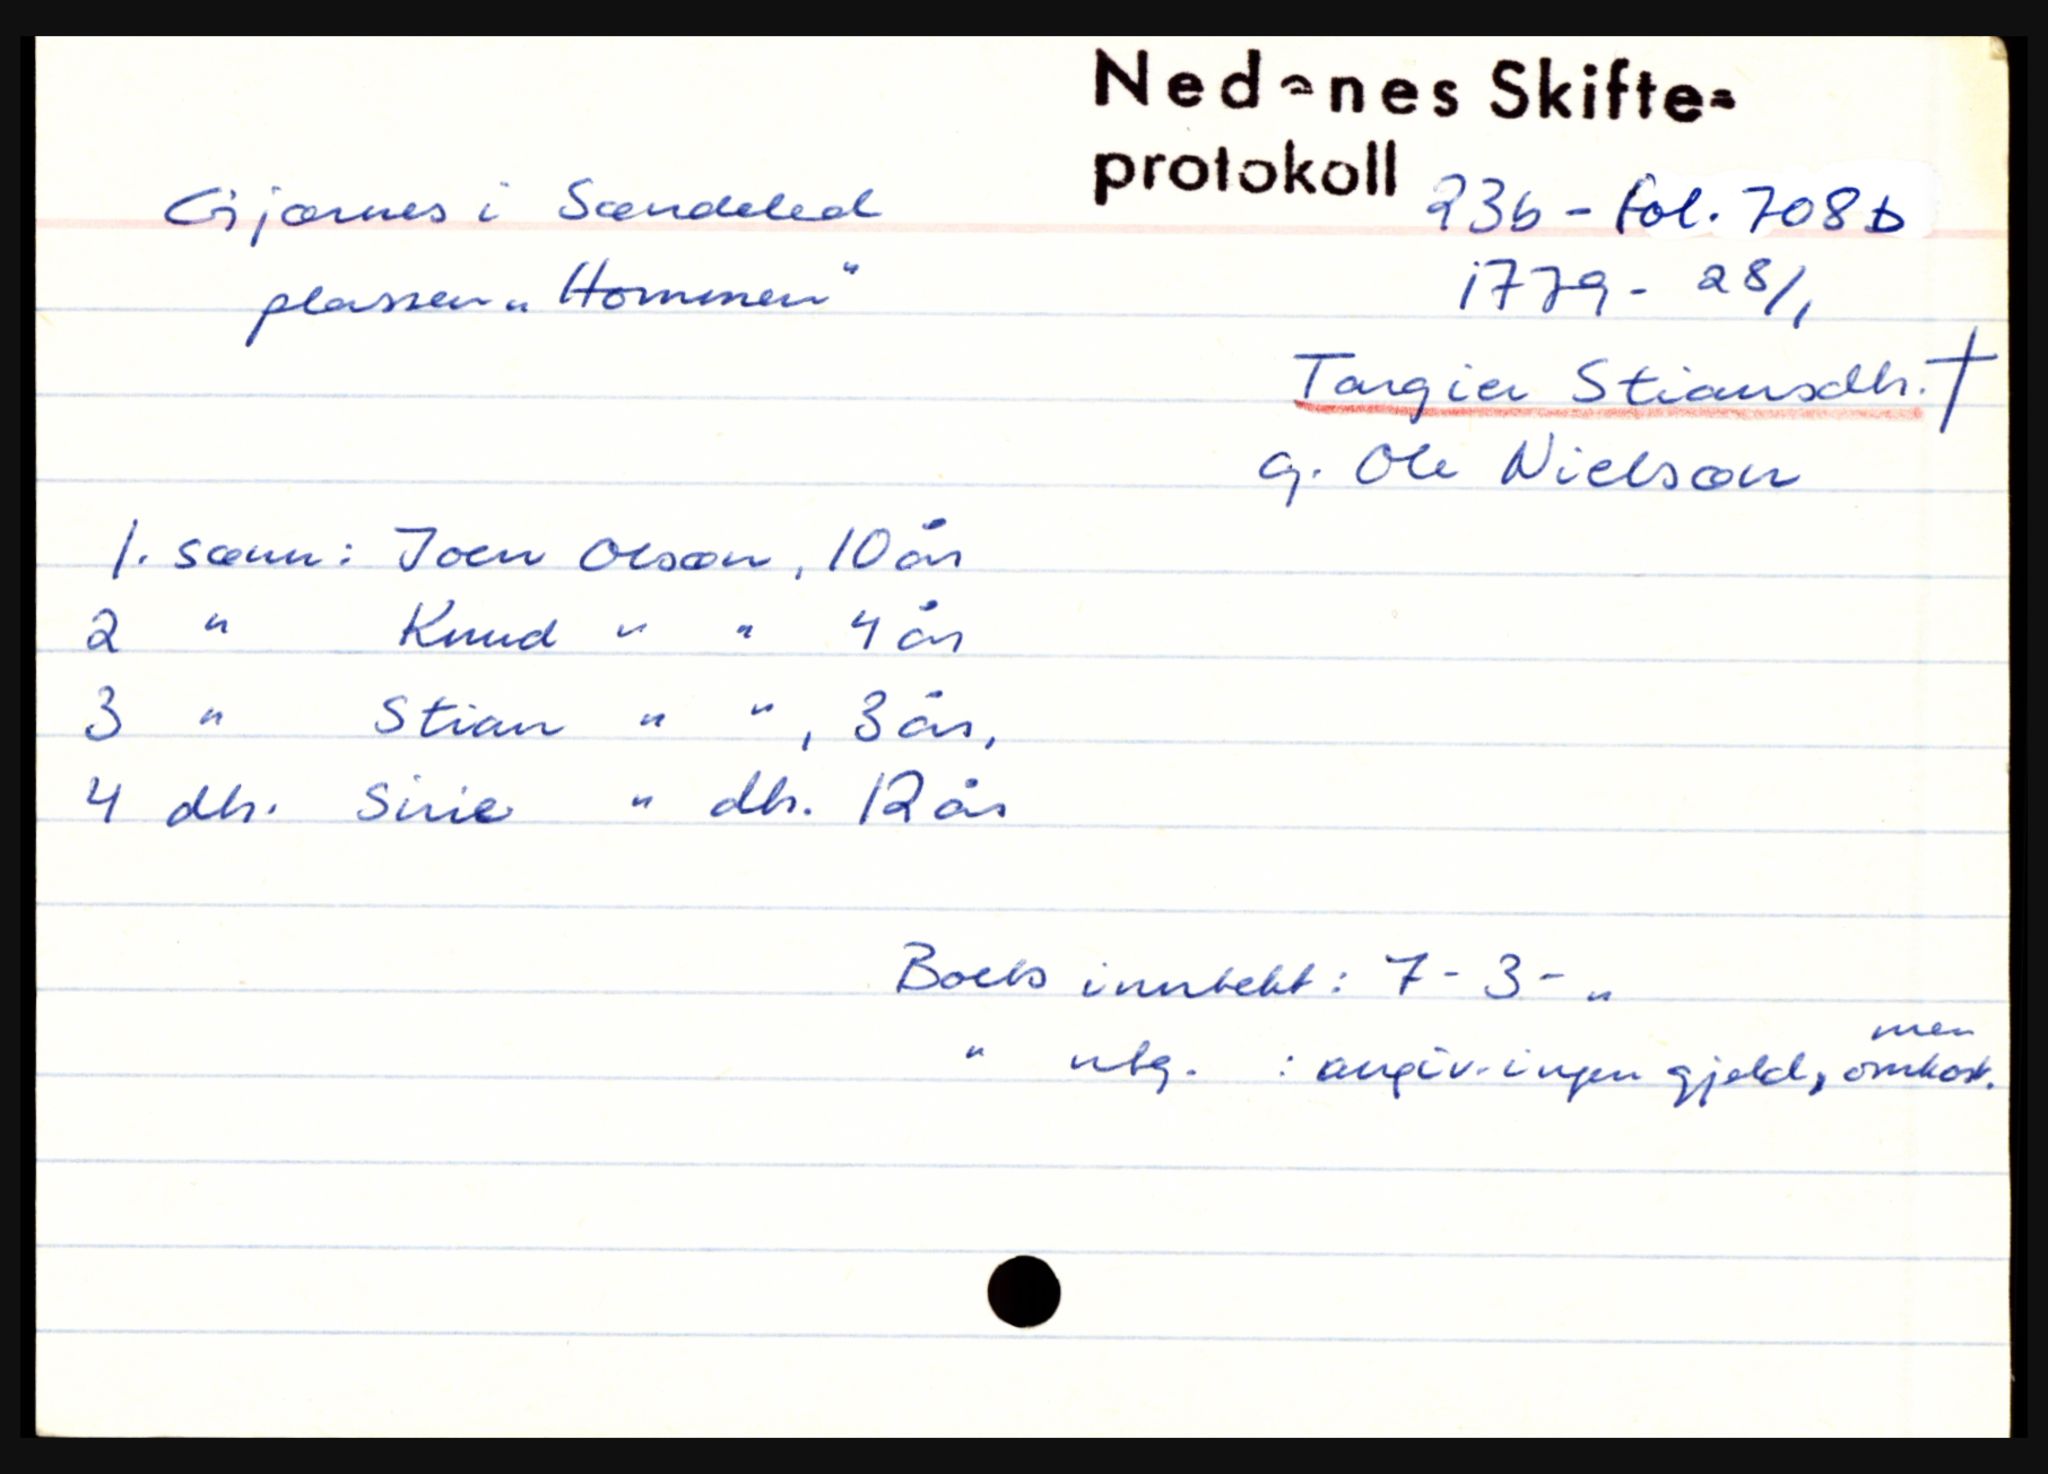 Nedenes Skifte=
protokoll 23b - fol. 708b
Gjærnes i Søndeled
plassen „Hommen"
1779 - 28/1
Targier Stiansdtr. †
g. Ole Nielsøn
1. sønn: Joen Olsøn, 10 år
2 " Knud " " 4 år
3 " Stian " " , 3 år,
4 dtr. Sirie " dtr. 12 år
Boets inntekt: 7 - 3 - "
" utg. : angiv. ingen gjeld, men omkost.